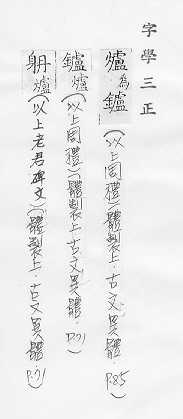 字學三正
爐為鑪(以上周禮)體製上·古文異體·P.85
鑪爐(以上周禮)體製上·古文異體·P.71
爐(以上老君碑文)體製上·古文異體 P.71